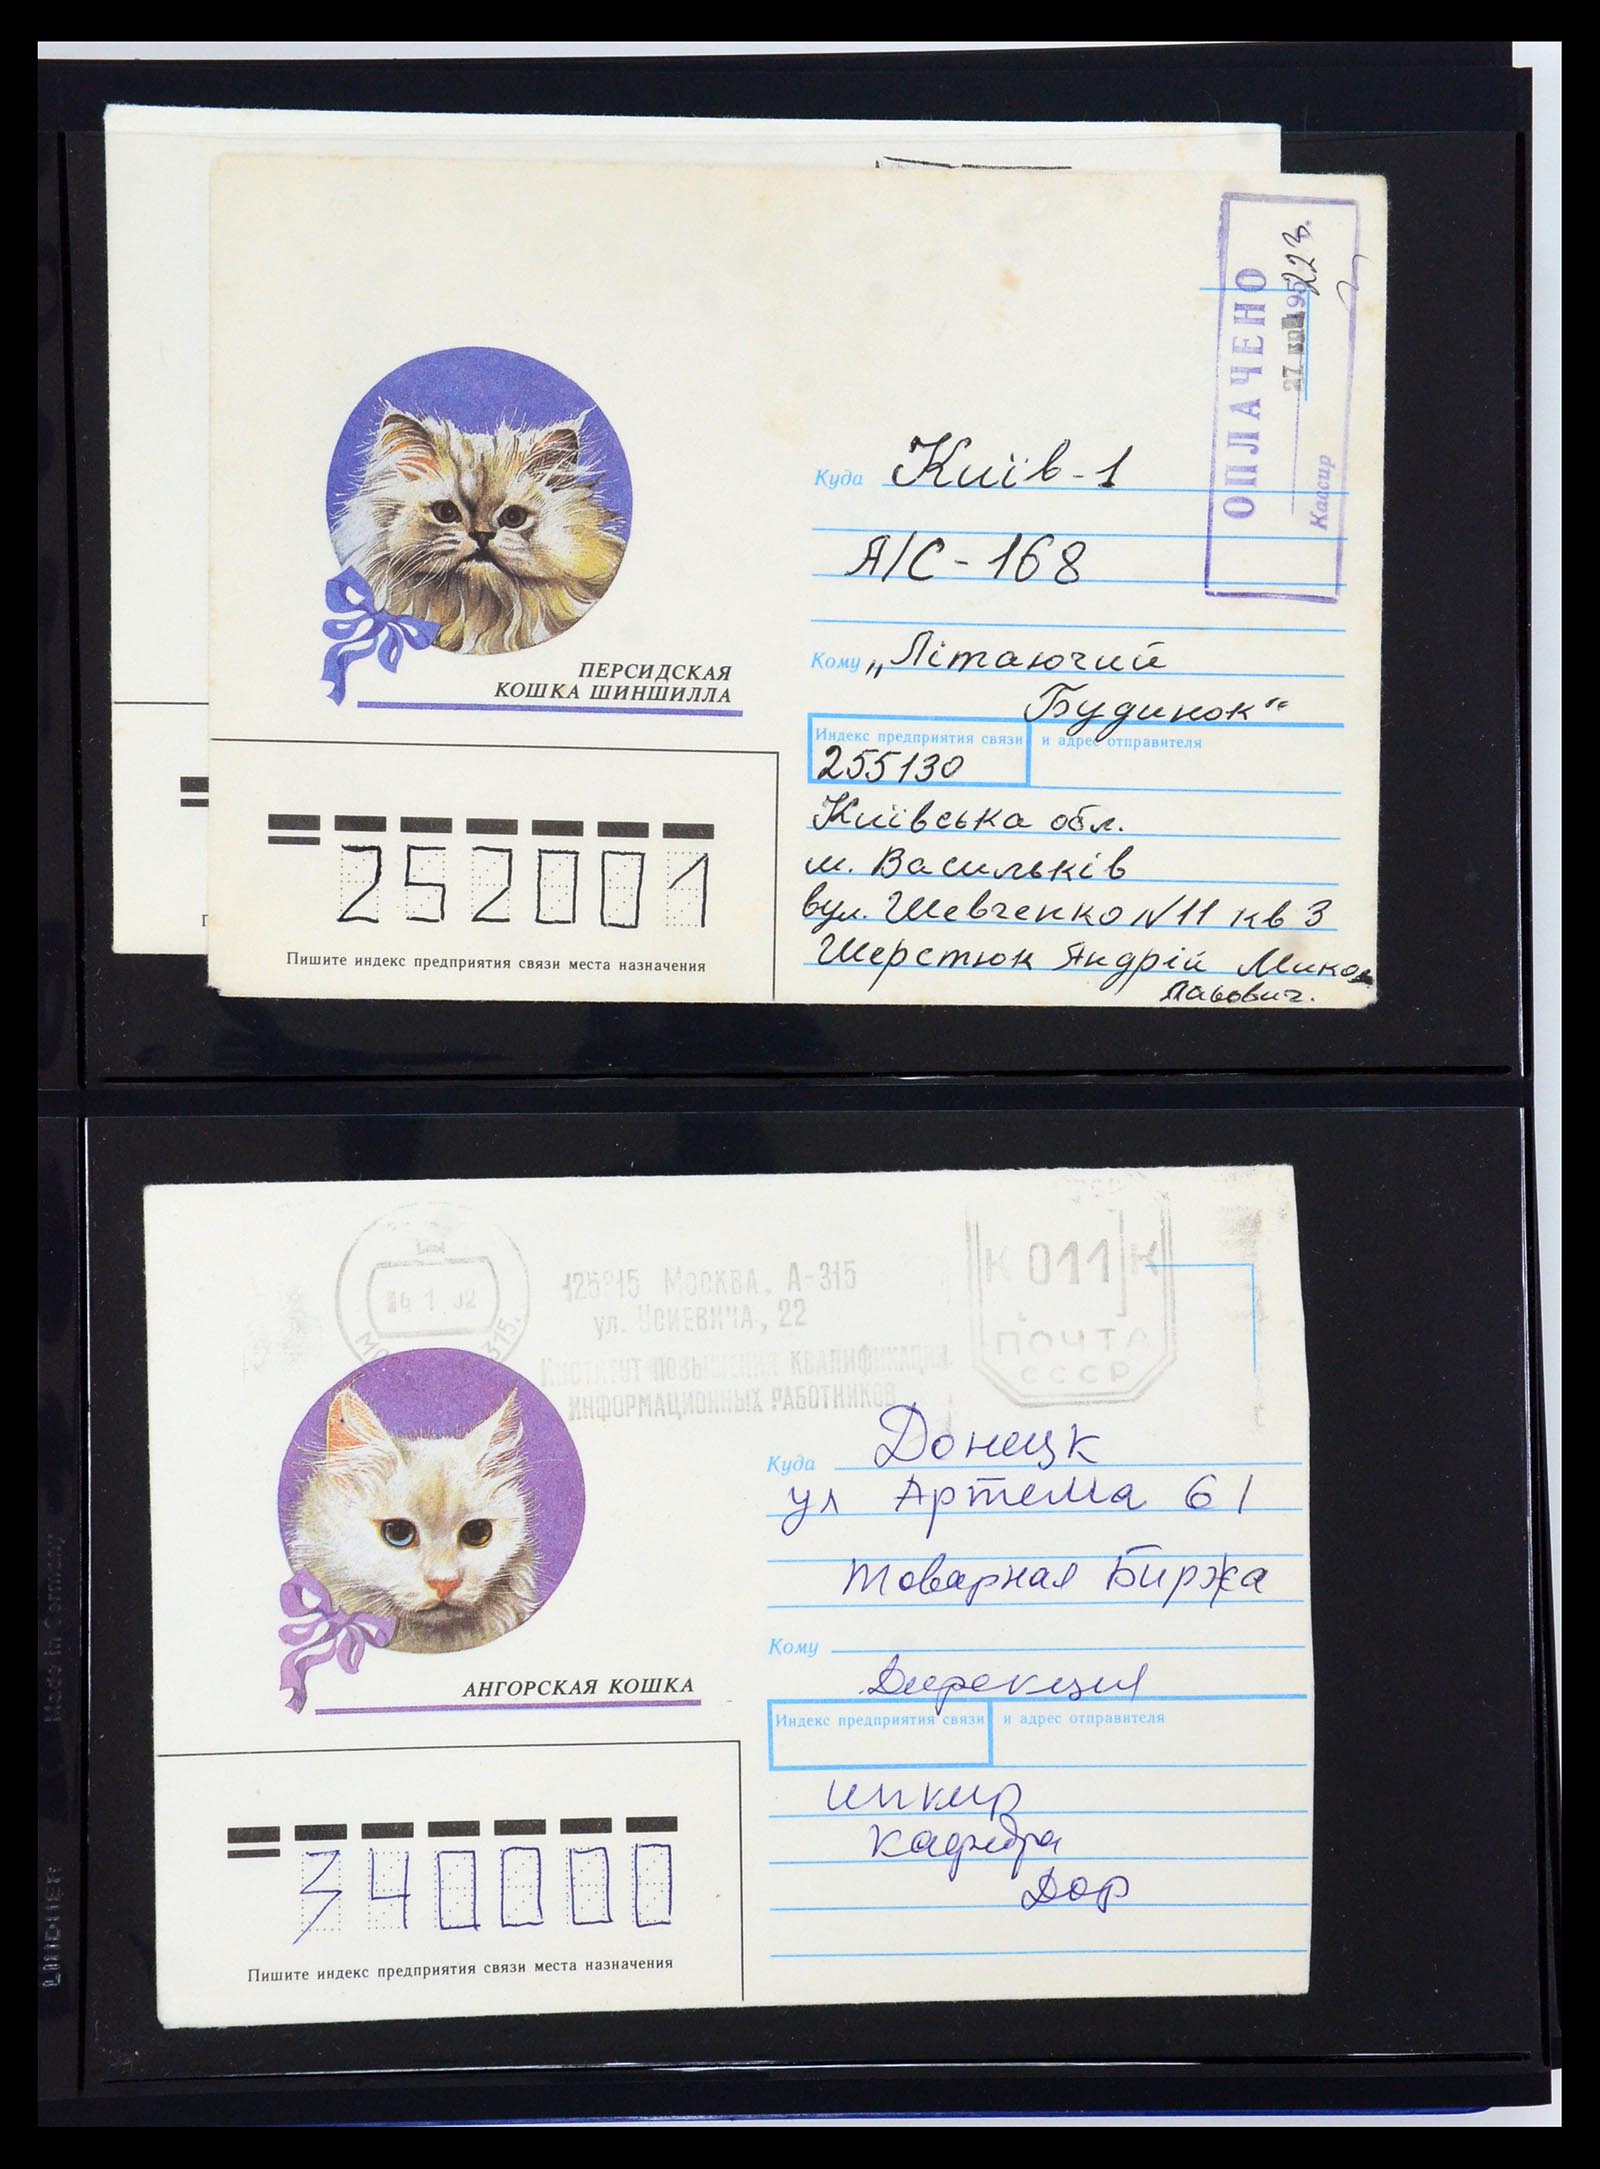 ОПЛАЧЕНО
Кассир
Куда Київ-1
А/С - 168
Кому „Літаючий
Будинок“
ПЕРСИДСКАЯ
КОШКА ШИНШИЛЛА
Индекс предприятия связи и адрес отправителя
255130
Київська обл.
м. Васильків
вул. Шевченко N 11 кв 3
Шерстюк Андрій Мико
лайович.
252001
Пишите индекс предприятия связи места назначения
К 011 К
ПОЧТА
СССР
МОСКВА, А-315
ул. УСИЕВИЧА, 22
ИНСТИТУТ ПОВЫШЕНИЯ КВАЛИФИКАЦИИ
ИНФОРМАЦИОННЫХ РАБОТНИКОВ
Куда Донецк
ул Артема 61
товарная Биржа
Кому
Дирекция
АНГОРСКАЯ КОШКА
Индекс предприятия связи и адрес отправителя
ипкир
кафедра
ДОР
340000
Пишите индекс предприятия связи места назначения
Made in Germany
LINDNER